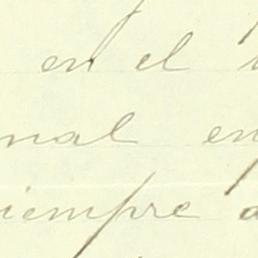 en el
nal en
iempre a